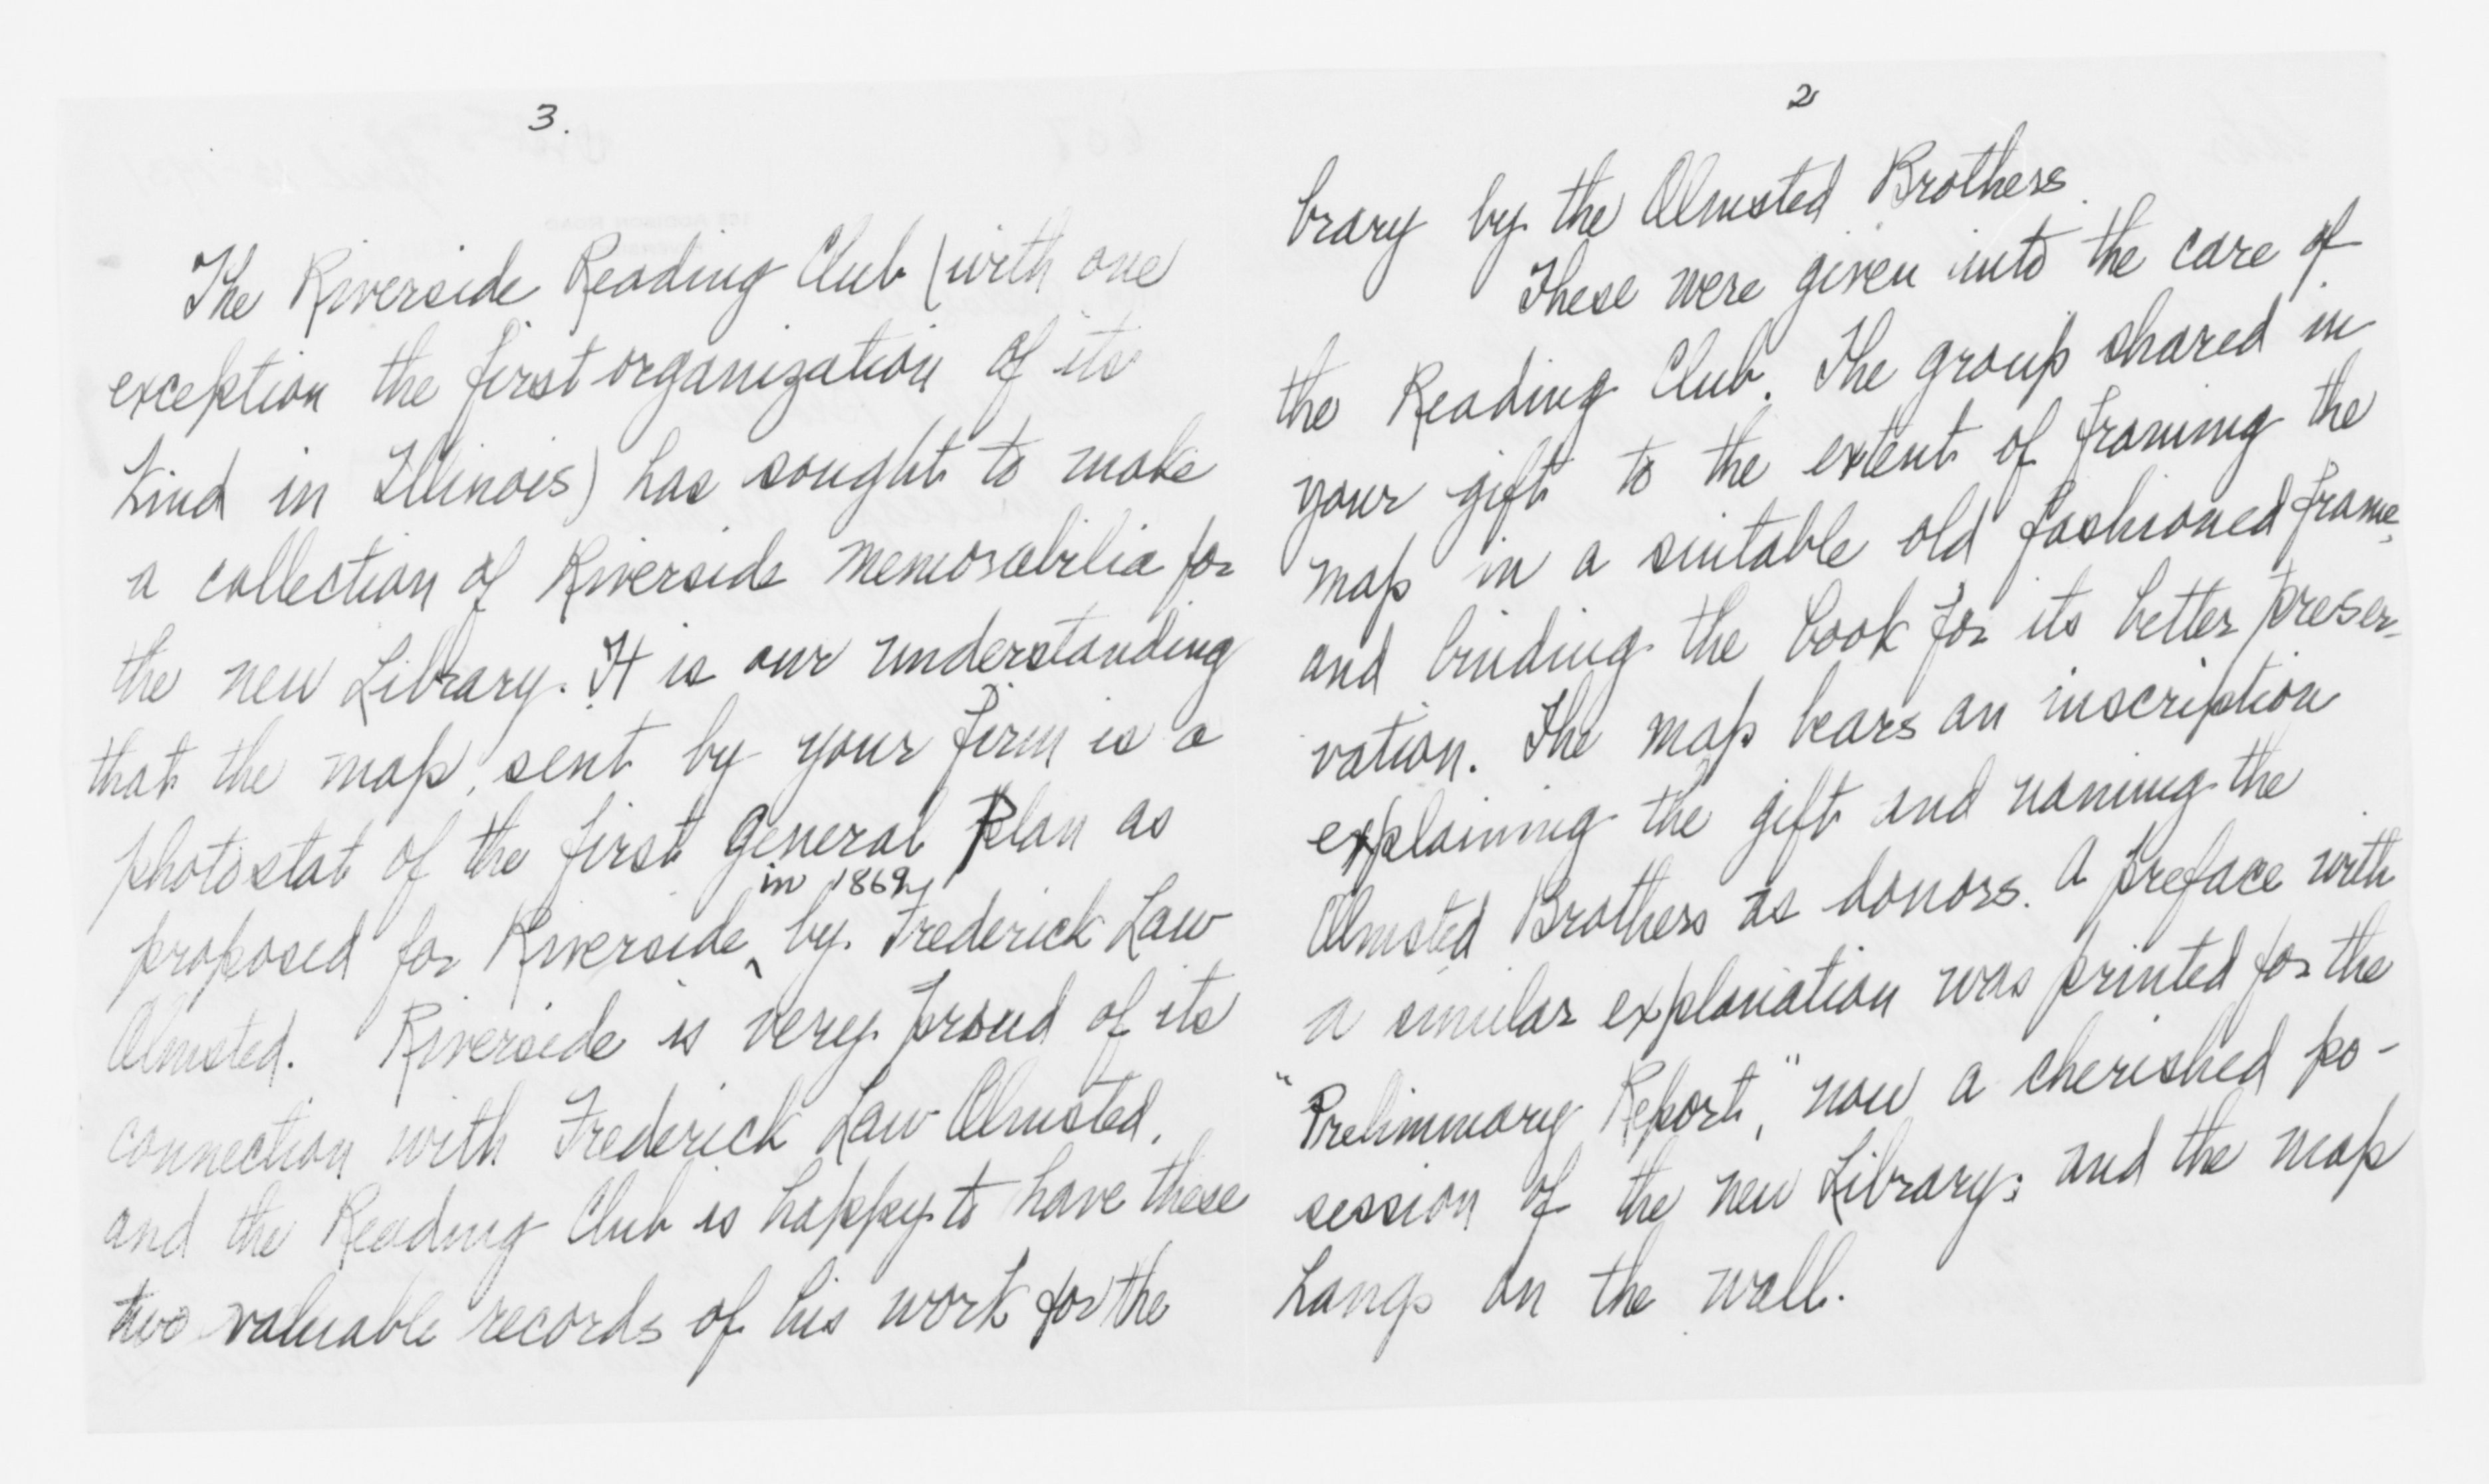 2
brary by the Olmsted Brothers.
These were given into the care of
the Reading Club. The group shared in
your gift to the extent of framing the
map in a suitable old fashioned frame,
and binding the book for its better preser-
vation. The map bears an inscription
explaining the gift and naming the
Olmsted Brothers as donors. A preface with
a similar explanation was printed for the
"Preliminary Report," now a cherished po-
session of the new Library; and the map
hangs on the wall.
3.
The Riverside Reading Club (with one
exception the first organization of its
kind in Illinois) has sought to make
a collection of Riverside memorabilia for
the new Library. It is our understanding
that the map, sent by your firm is a
photostat of the first general Plan as
in 1869
proposed for Riverside ^ by Frederick Law
Olmsted. Riverside is very proud of its
connection with Frederick Law Olmsted,
and the Reading Club is happy to have these
two valuable records of his work for the